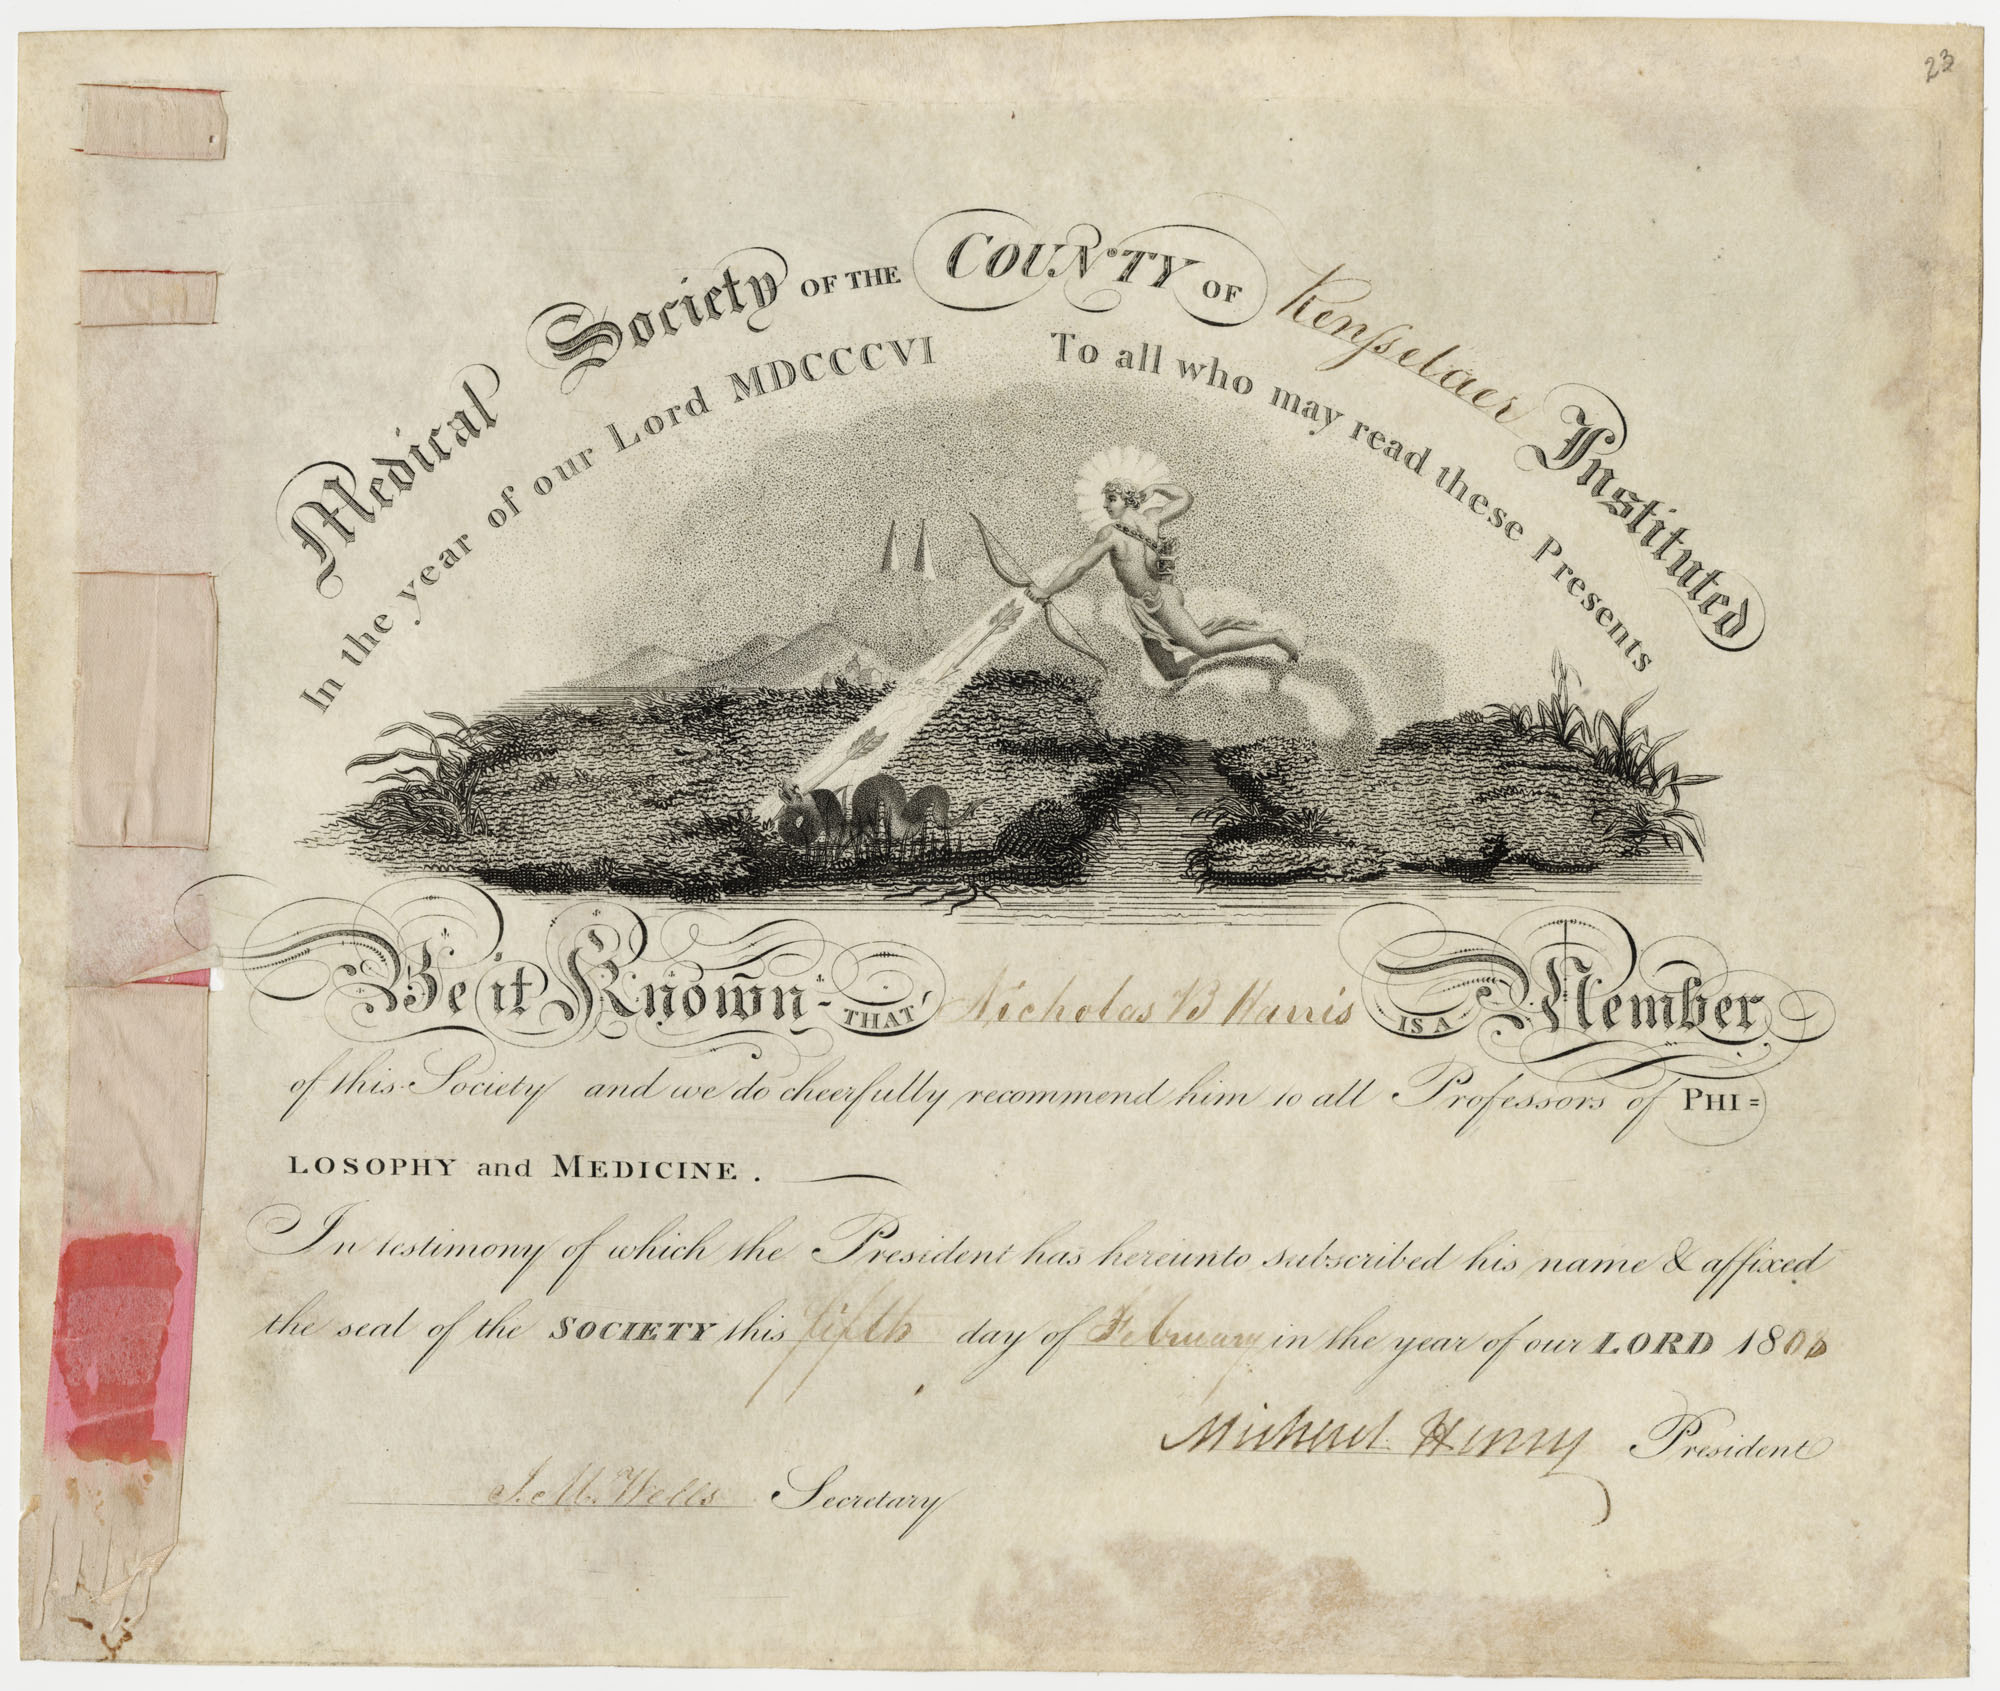 23
Medical Society OF THE COUNTY OF Rensselaer Instituted
In the year of our Lord MDCCCVI To all who may read these Presents
Be it Known THAT Nicholas B Harris IS A Member
of this Society and we do cheerfully recommend him to all Professors of PHI=
LOSOPHY and MEDICINE.
In testimony of which the President has hereunto subscribed his name & affixed
the seal of the SOCIETY this fifth day of February in the year of our LORD
Michael Henry President
J. M. Wells Secretary